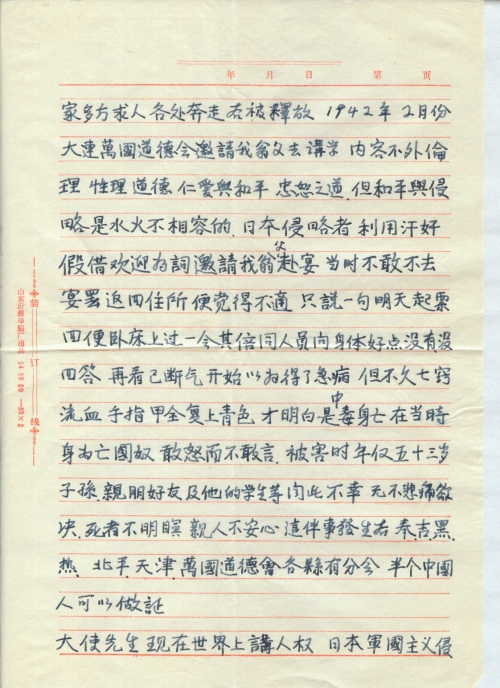 年 月 日 第 页
家多方求人各处奔走右被釋放 1942年 2月份
大連萬國道德会邀請我翁父去講学 内容不外倫
理 性理道德 仁愛與和平 忠恕之道 但和平與侵
略是水火不相容的 日本侵略者 利用汗奸
假借欢迎為詞邀請我翁父赴宴 当时不敢不去
宴罢返回住所 便觉得不適 只説一句明天起票
回便卧床上过一会其倍同人员问身体好点没有没
回答 再看已断气 开始以為得了急病 但不久七窍
流血 手指甲全复上青色 才明白是中毒身亡 在当時
身為亡國奴 敢怒而不敢言 被害时年仅五十三岁
子孫.親朋好友及他的学生等闻此不幸 无不悲痛欲
决.死者不明瞑 親人不安心 這件事發生右 奉.吉.黑.
热. 北平.天津.萬國道德會各縣有分会 半个中國
人可以做証
大使先生 现在世界上講人权 日本軍國主义侵
装 订 线